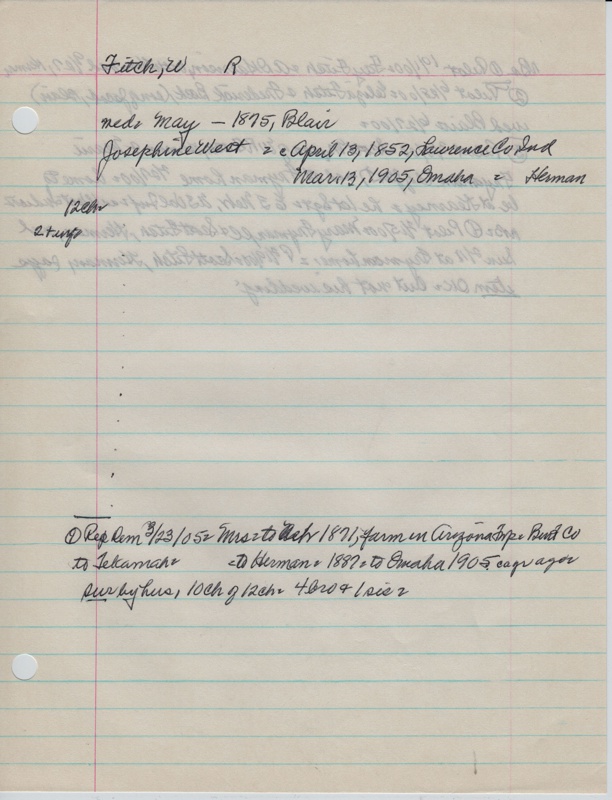 Fitch, W R
med= May - 1875, Blair
Josephine West = c April 13, 1852, Lawrence Co, Ind
Mar 13, 1905, Omaha = Herman
12 ch=
2 + inf
① Rep Dem 3/23/05= Mrs= to Neb 1871, farm in Arizona Twp= Burt Co
to Tekamah= =to Herman= 1887= to Omaha 1905 ago
sur by hus, 10 ch of 12 ch= 4 bro & 1 sis=